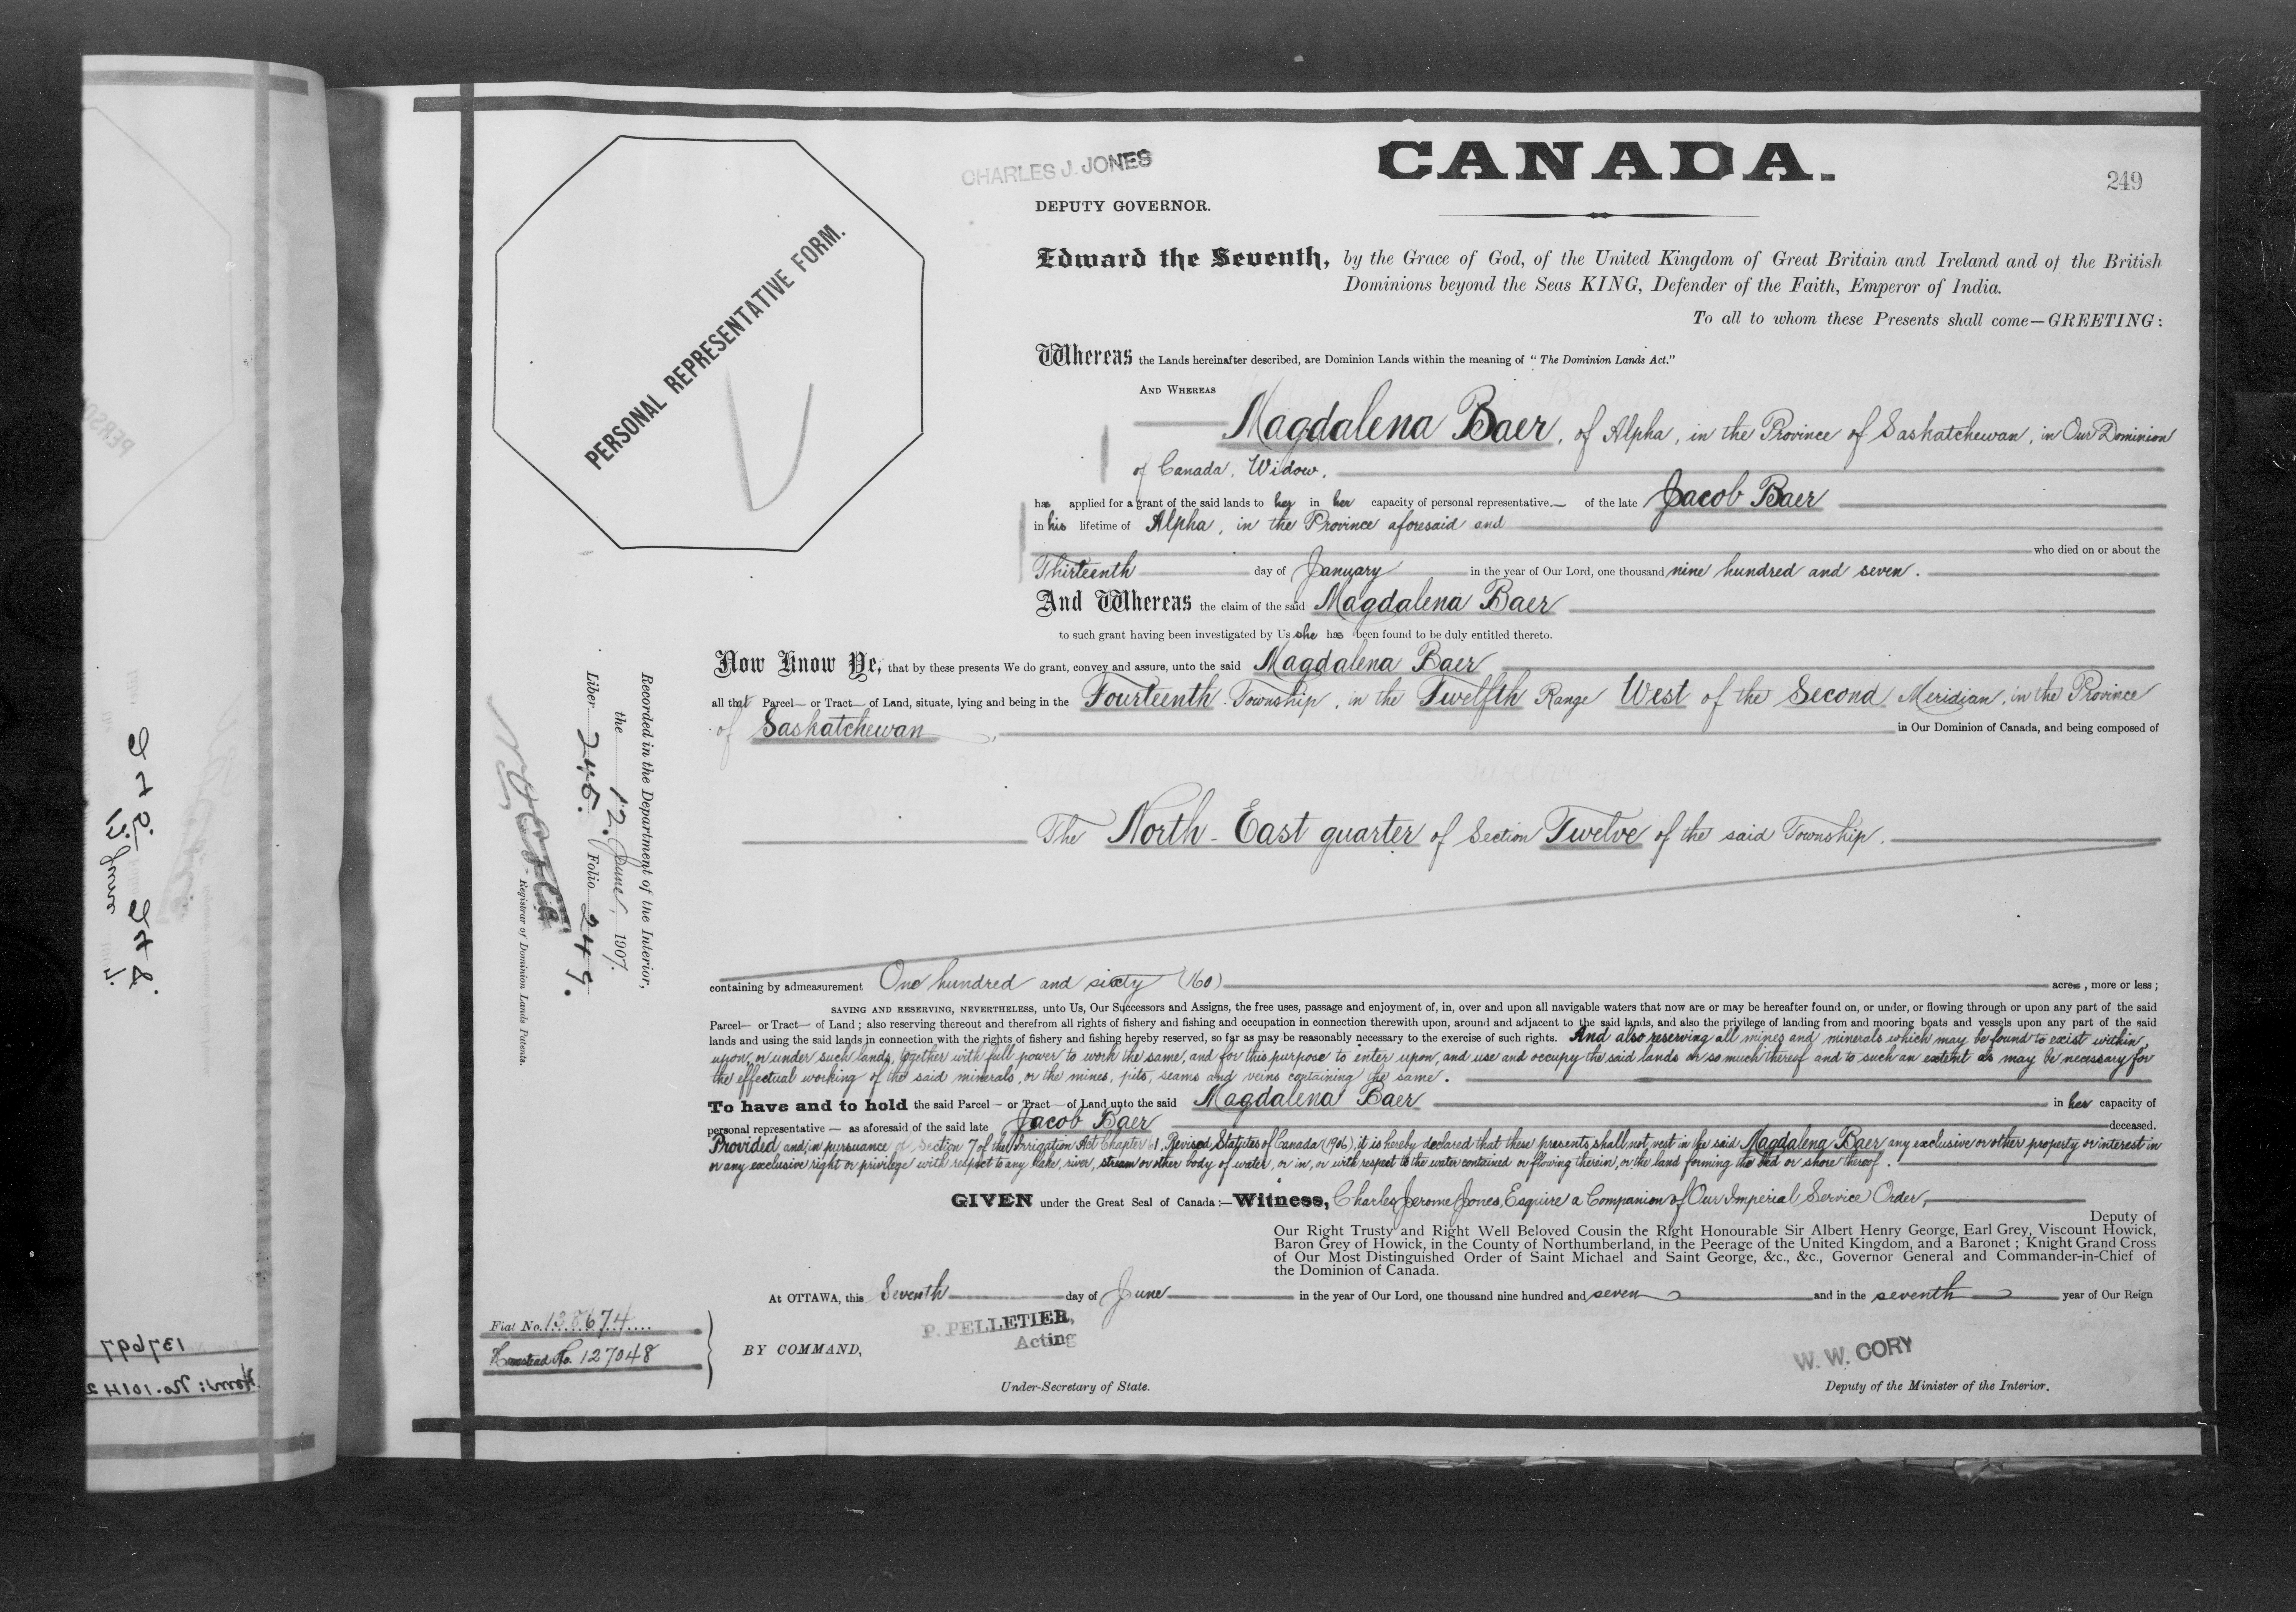 CHARLES J. JONES
CANADA.
249
DEPUTY GOVERNOR.
PERSONAL REPRESENTATIVE FORM.
Edward the Seventh, by the Grace of God, of the United Kingdom of Great Britain and Ireland and of the British
Dominions beyond the Seas KING, Defender of the Faith, Emperor of India.
To all to whom these Presents shall come—GREETING:
Whereas the Lands hereinafter described, are Dominion Lands within the meaning of "The Dominion Lands Act."
AND WHEREAS
Magdalena Baer, of Alpha, in the Province of Saskatchewan, in Our Dominion
of Canada, Widow,
has applied for a grant of the said lands to her in her capacity of personal representative— of the late Jacob Baer
in his lifetime of Alpha, in the Province aforesaid and
who died on or about the
Thirteenth day of January in the year of Our Lord, one thousand nine hundred and seven.
And Whereas the claim of the said Magdalena Baer
to such grant having been investigated by Us she has been found to be duly entitled thereto.
Now Know Ye, that by these presents We do grant, convey and assure, unto the said Magdalena Baer
all that Parcel— or Tract— of Land, situate, lying and being in the Fourteenth Township, in the Twelfth Range West of the Second Meridian, in the Province
of Saskatchewan, in Our Dominion of Canada, and being composed of
The North-East quarter of Section Twelve of the said Township.
containing by admeasurement One hundred and sixty (160) acres, more or less;
SAVING AND RESERVING, NEVERTHELESS, unto Us, Our Successors and Assigns, the free uses, passage and enjoyment of, in, over and upon all navigable waters that now are or may be hereafter found on, or under, or flowing through or upon any part of the said
Parcel— or Tract— of Land; also reserving thereout and therefrom all rights of fishery and fishing and occupation in connection therewith upon, around and adjacent to the said lands, and also the privilege of landing from and mooring boats and vessels upon any part of the said
lands and using the said lands in connection with the rights of fishery and fishing hereby reserved, so far as may be reasonably necessary to the exercise of such rights. And also reserving all mines and minerals which may be found to exist within,
upon, or under such lands, together with full power to work the same, and for this purpose to enter upon, and use and occupy the said lands or so much thereof and to such an extent as may be necessary for
the effectual working of the said minerals, or the mines, pits, seams and veins containing the same.
To have and to hold the said Parcel— or Tract— of Land unto the said Magdalena Baer in her capacity of
personal representative — as aforesaid of the said late Jacob Baer deceased.
Provided and in pursuance of Section 7 of the Irrigation Act Chapter 61, Revised Statutes of Canada (1906), it is hereby declared that these presents shall not vest in the said Magdalena Baer any exclusive or other property or interest in
or any exclusive right or privilege with respect to any lake, river, stream or other body of water, or in, or with respect to the water contained or flowing therein, or the land forming the bed or shore thereof.
GIVEN under the Great Seal of Canada:—Witness, Charles Jerome Jones, Esquire a Companion of Our Imperial Service Order,
Deputy of
Our Right Trusty and Right Well Beloved Cousin the Right Honourable Sir Albert Henry George, Earl Grey, Viscount Howick,
Baron Grey of Howick, in the County of Northumberland, in the Peerage of the United Kingdom, and a Baronet; Knight Grand Cross
of Our Most Distinguished Order of Saint Michael and Saint George, &c., &c., Governor General and Commander-in-Chief of
the Dominion of Canada.
At OTTAWA, this Seventh day of June in the year of Our Lord, one thousand nine hundred and seven and in the seventh year of Our Reign
Fiat No. 138674
Homestead No. 127048
BY COMMAND,
P. PELLETIER,
Acting
Under-Secretary of State.
W. W. CORY
Deputy of the Minister of the Interior.
Recorded in the Department of the Interior,
the 12. June, 1907.
Liber 245. Folio 249.
Registrar of Dominion Lands Patents.
245 248.
13 June
137697
Hom: No. 10142